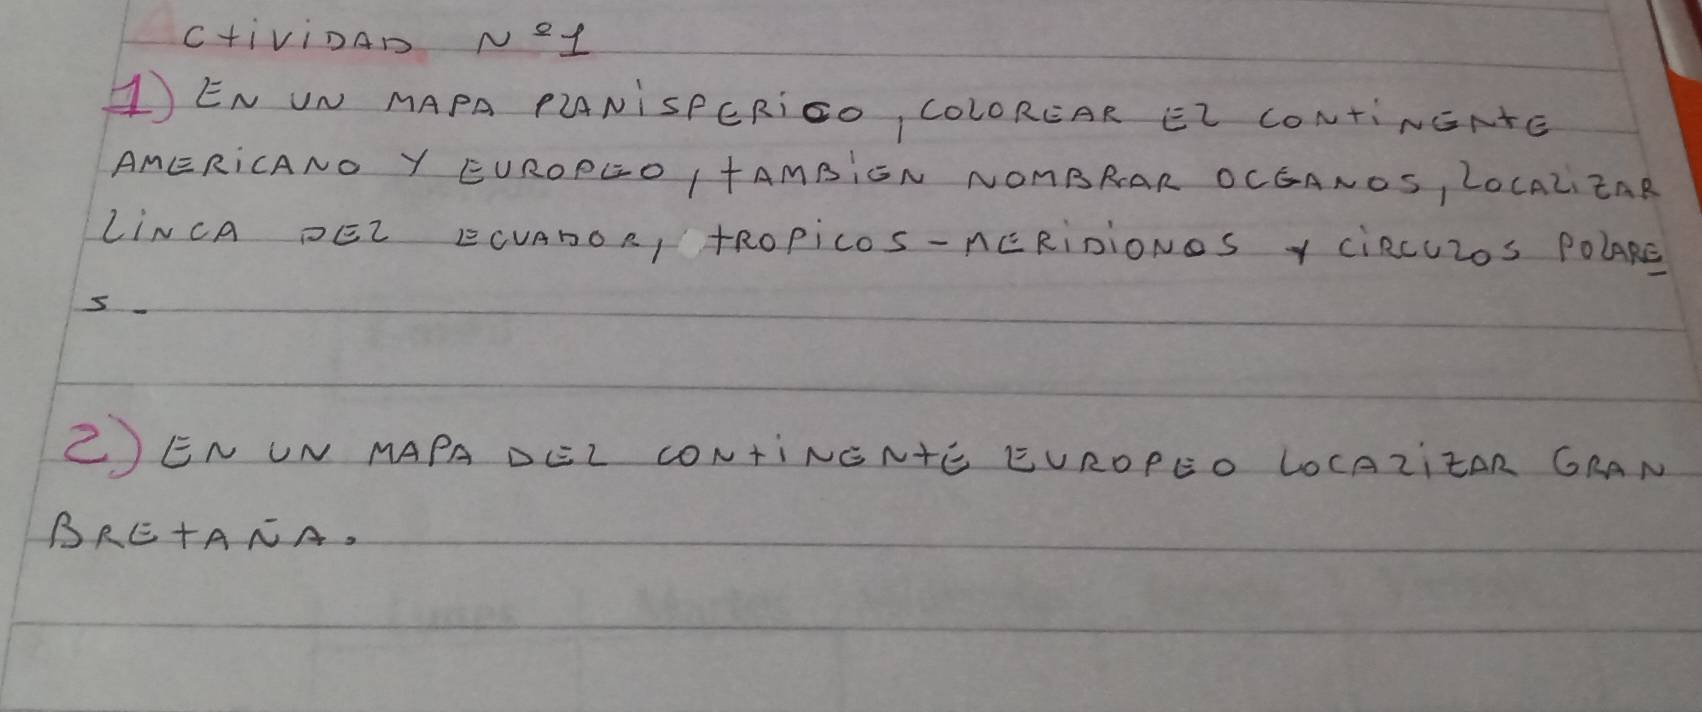 ACTIVIDAD Nº1
1) EN UN MAPA PLANISFERICO, COLOREAR EL CONTINENTE
AMERICANO Y EUROPEO, TAMBIEN NOMBRAR OCEANOS, LOCALIZAR
LINEA DEL ECUADOR, TROPICOS - MERIDIONOS Y CIRCULOS POLARE
S.
2) EN UN MAPA DEL CONTINENTE EUROPEO LOCALIZAR GRAN
BRETAÑA.